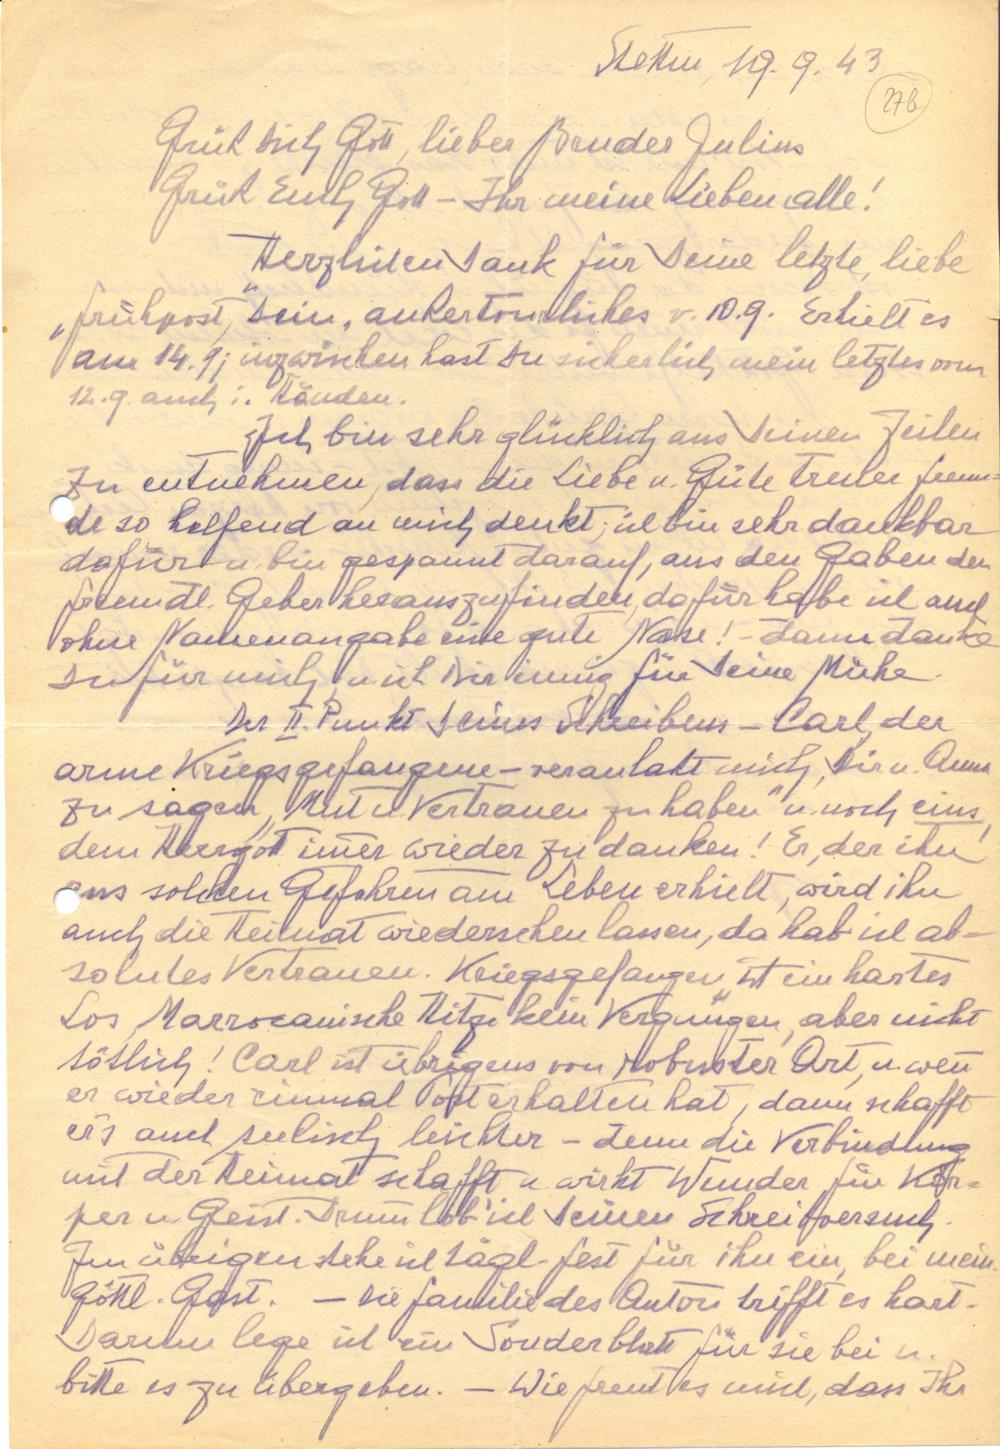 Stettin, 19. 9. 43
27b
Grüß Dich Gott, lieber Bruder Julius
Grüß Euch Gott – Ihr meine Lieben alle!
Herzlichen Dank für Deine letzte, liebe
„Frühpost“, Dein „außertourliches v. 10.9. Erhielt es
am 14.9; inzwischen hast Du sicherlich mein letztes vom
12.9. auch i. Händen.
Ich bin sehr glücklich aus Deinen Zeilen
zu entnehmen, dass die Liebe u. Güte treuer Freun-
de so helfend an mich denkt; ich bin sehr dankbar
dafür u. bin gespannt darauf, aus den Gaben den
freundl. Geber herauszufinden, dafür habe ich auch
ohne Namenangabe eine gute Nase! – Dann danke
Du für mich, u. ich Dir innig für Deine Mühe.
Der II. Punkt Deines Schreibens – Carl, der
arme Kriegsgefangene – veranlaßt mich, Dir u. Anna
zu sagen, „Mut u Vertrauen zu haben“ u. noch eins,
dem Herrgott immer wieder zu danken! Er, der ihn
aus solchen Gefahren am Leben erhielt, wird ihn
auch die Heimat wiedersehen lassen, da hab ich ab-
solutes Vertrauen. Kriegsgefangen ist ein hartes
Los, Marrocanische Hitze kein Vergnügen, aber nicht
tötlich! Carl ist übrigens von robuster Art, u. wenn
er wieder einmal Post erhalten hat, dann schafft
er's auch seelisch leichter – denn die Verbindung
mit der Heimat schafft u. wirkt Wunder für Kör-
per u. Geist. Drum lob' ich Deinen Schreibversuch.
Im übrigen stehe ich tägl. fest für ihn ein, bei mein.
göttl. Gast. – Die Familie des Anton trifft es hart.
Darum lege ich ein Sonderblatt für sie bei u.
bitte es zu übergeben. – Wie freut es mich, dass Ihr